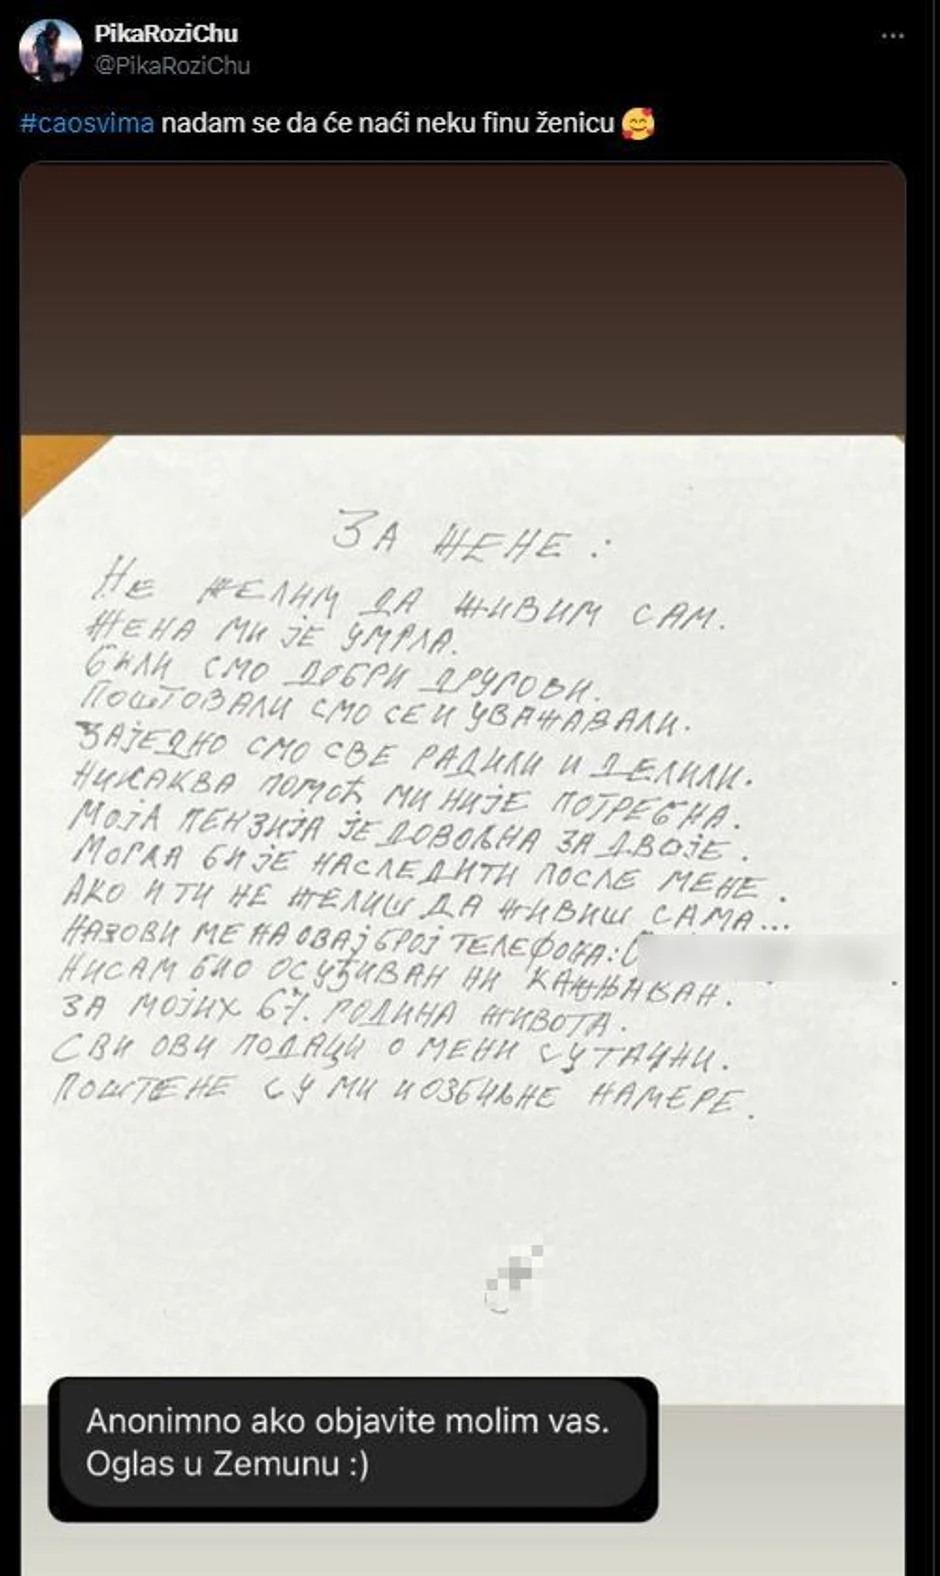 PikaRoziChu
@PikaRoziChu
#caosvima nadam se da će naći neku finu ženicu
ЗА ЖЕНЕ :
НЕ ЖЕЛИМ ДА ЖИВИМ САМ.
ЖЕНА МИ ЈЕ УМРЛА.
БИЛИ СМО ДОБРИ ДРУГОВИ.
ПОШТОВАЛИ СМО СЕ И УВАЖАВАЛИ.
ЗАЈЕДНО СМО СВЕ РАДИЛИ И ДЕЛИЛИ.
НИКАКВА ПОМОЋ МИ НИЈЕ ПОТРЕБНА.
МОЈА ПЕНЗИЈА ЈЕ ДОВОЉНА ЗА ДВОЈЕ.
МОГЛА БИ ЈЕ НАСЛЕДИТИ ПОСЛЕ МЕНЕ.
АКО И ТИ НЕ ЖЕЛИШ ДА ЖИВИШ САМА...
НАЗОВИ МЕ НА ОВАЈ БРОЈ ТЕЛЕФОНА:
НИСАМ БИО ОСУЂИВАН НИ КАЖЊАВАН.
ЗА МОЈИХ 67. ГОДИНА ЖИВОТА.
СВИ ОВИ ПОДАЦИ О МЕНИ СУ ТАЧНИ.
ПОШТЕНЕ СУ МИ И ОЗБИЉНЕ НАМЕРЕ.
Anonimno ako objavite molim vas.
Oglas u Zemunu :)